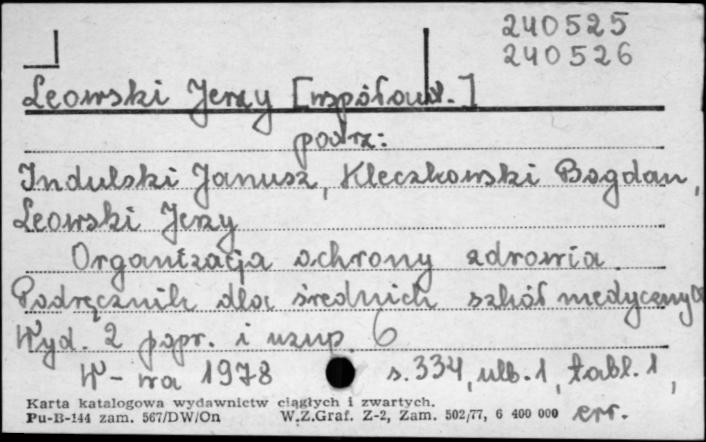 240525
240526
Leowski Jerzy [współaut.]
podrz:
Indulski Janusz, Kleczkowski Bogdan,
Leowski Jerzy
Organizacja ochrony zdrowia.
Podręcznik dla średnich szkół medycznych
Wyd. 2 popr. i uzup.
W-wa 1978 s. 334, ulb. 1, tabl. 1,
err.
Karta katalogowa wydawnictw ciągłych i zwartych.
Pu-B-144 zam. 567/DW/On W.Z.Graf. Z-2, Zam. 502/77, 6 400 000